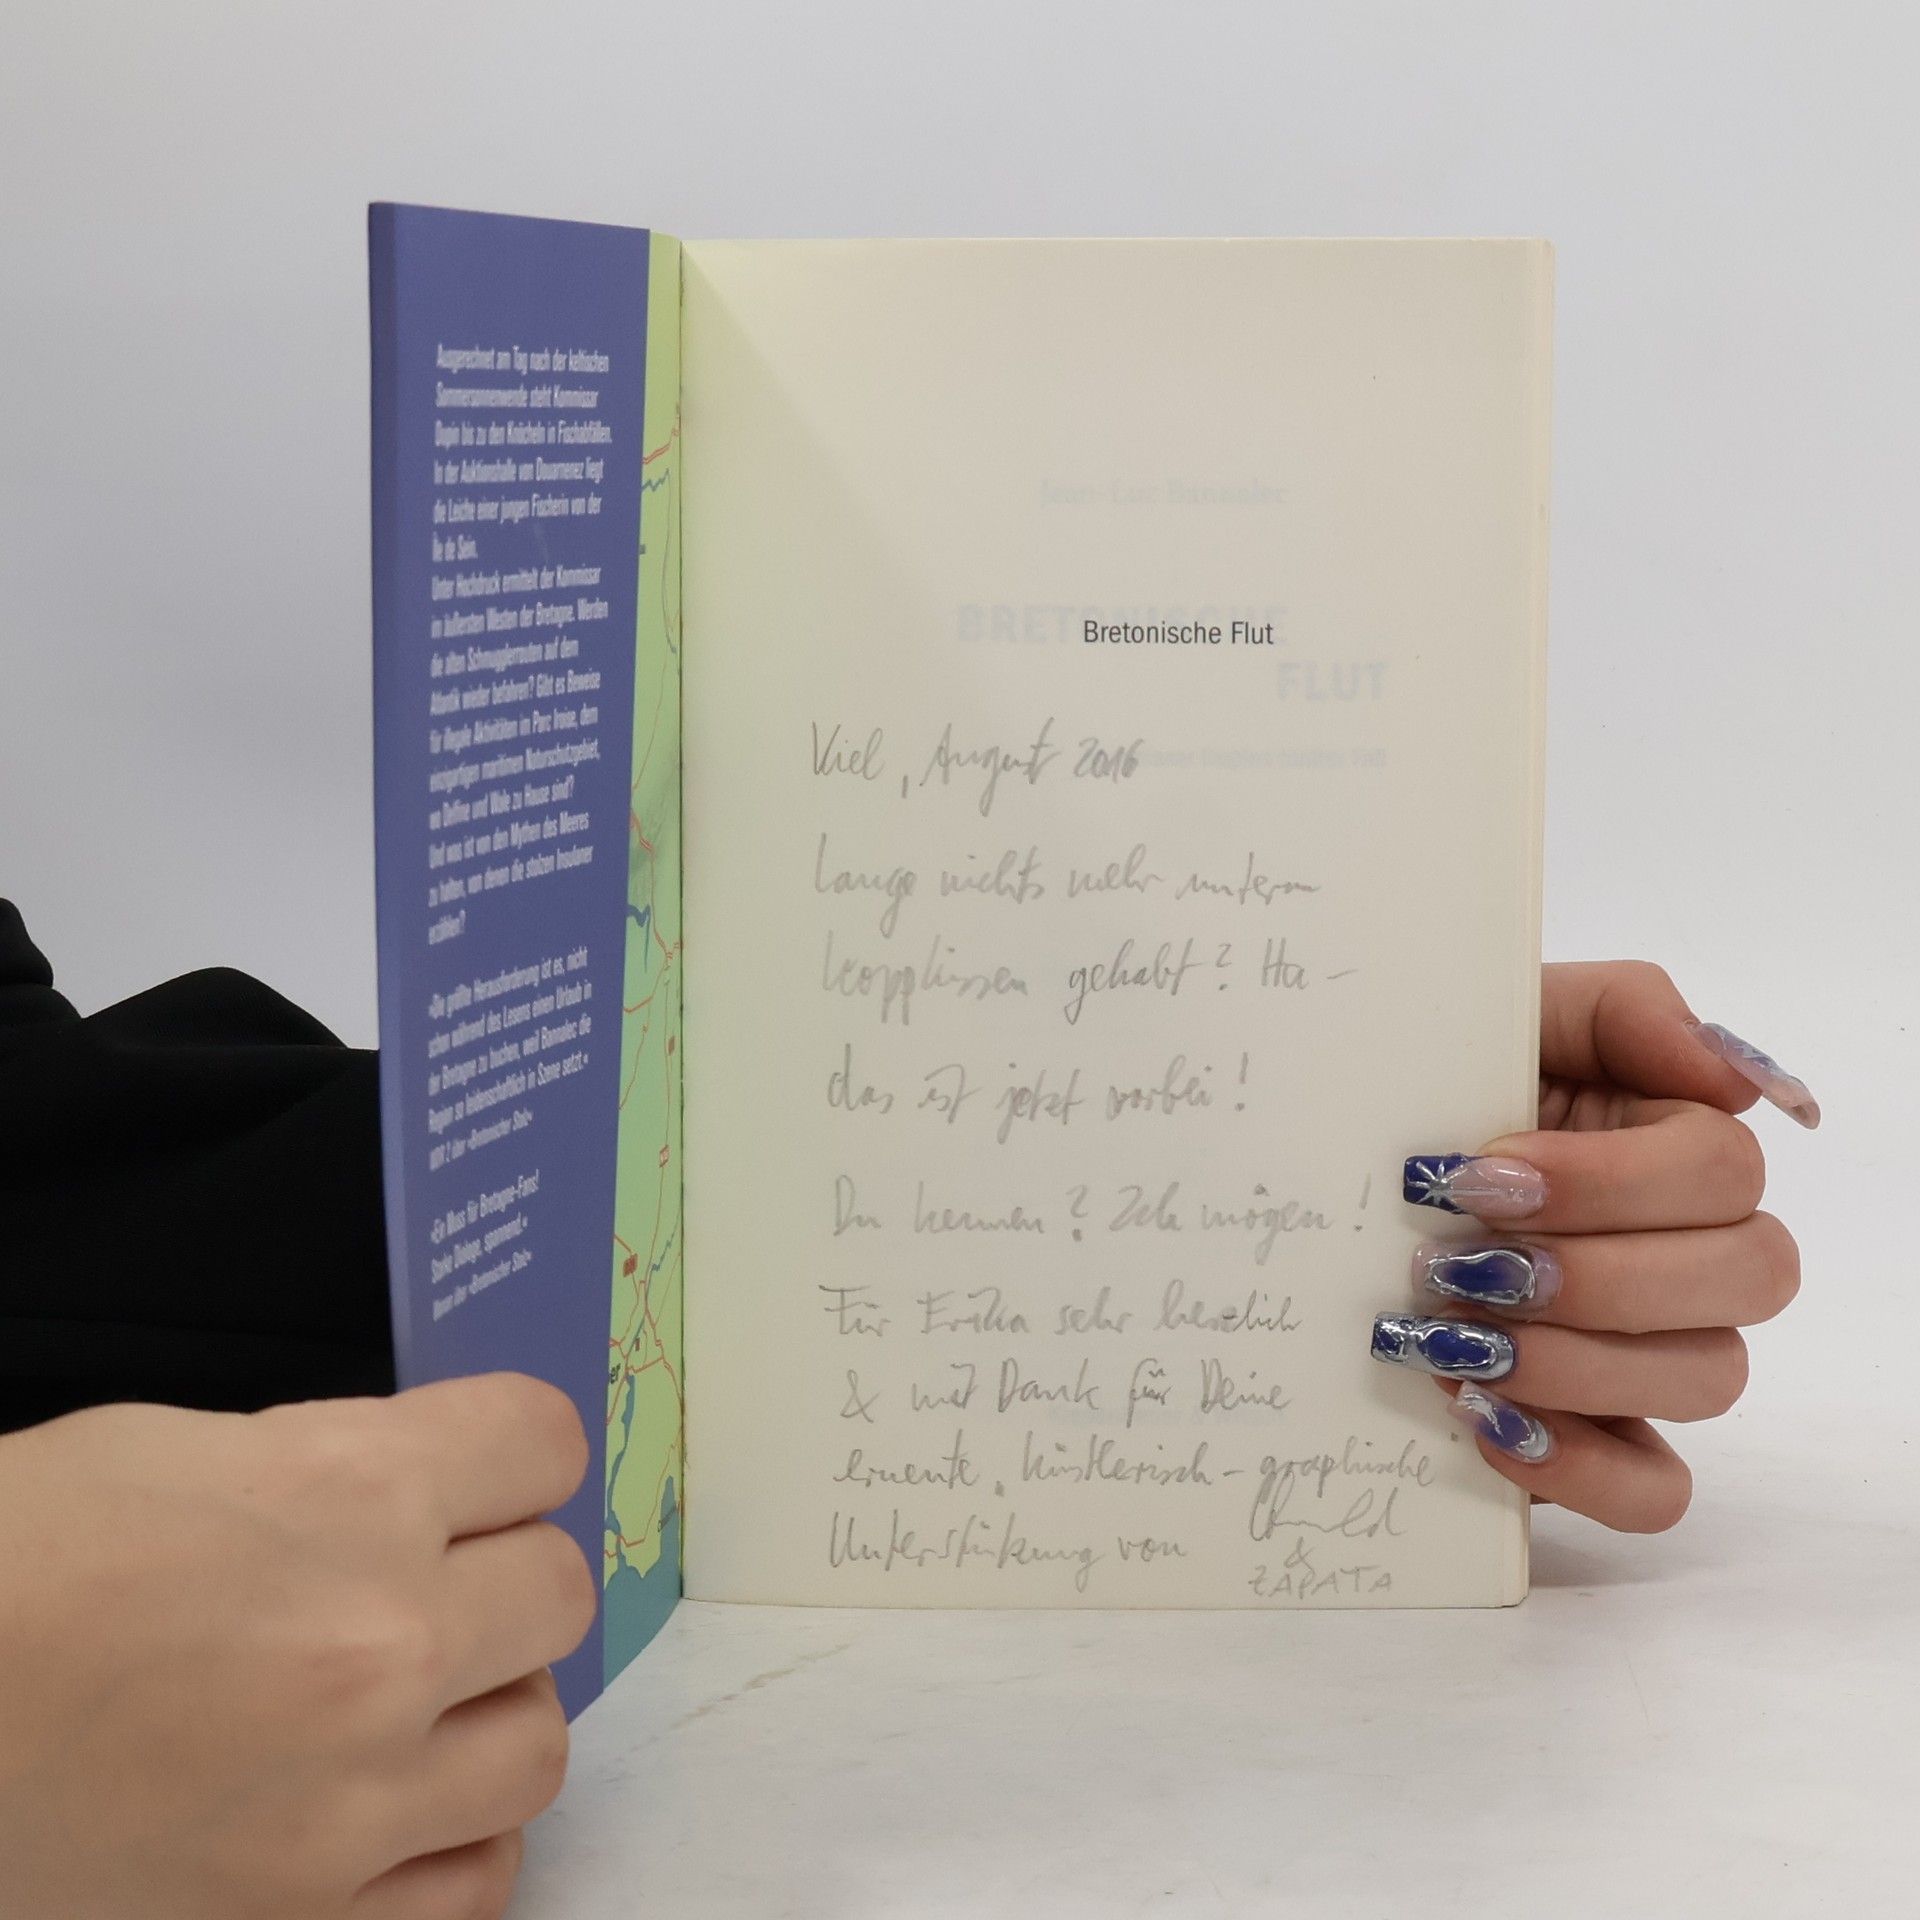 Ausgerechnet am Tag nach der keltischen
Sommersonnenwende steht Kommissar
Dupin bis zu den Knöcheln in Fischabfällen.
In der Auktionshalle von Douarnenez liegt
die Leiche einer jungen Fischerin von der
Île de Sein.
Unter Hochdruck ermittelt der Kommissar
im äußersten Westen der Bretagne. Werden
die alten Schmugglerrouten auf dem
Atlantik wieder befahren? Gibt es Beweise
für illegale Aktivitäten im Parc Iroise, dem
einzigartigen maritimen Naturschutzgebiet,
wo Delfine und Wale zu Hause sind?
Und was ist von den Mythen des Meeres
zu halten, von denen die stolzen Insulaner
erzählen?
»Die größte Herausforderung ist es, nicht
schon während des Lesens einen Urlaub in
der Bretagne zu buchen, weil Bannalec die
Region so leidenschaftlich in Szene setzt.«
WDR 2 über »Bretonischer Stolz«
»Ein Muss für Bretagne-Fans!
Starke Dialoge, spannend.«
über »Bretonischer Stolz«
Jean-Luc Bannalec
BRETONISCHE
FLUT
Bretonische Flut
Kiel, August 2016
Lange nichts mehr unterm
Koppkissen gehabt? Ha –
das ist jetzt vorbei!
Du kennen? Ich mögen!
Für Erika sehr herzlich
& mit Dank für Deine
erneute, künstlerisch-graphische
Unterstützung von
&
ZAPATA